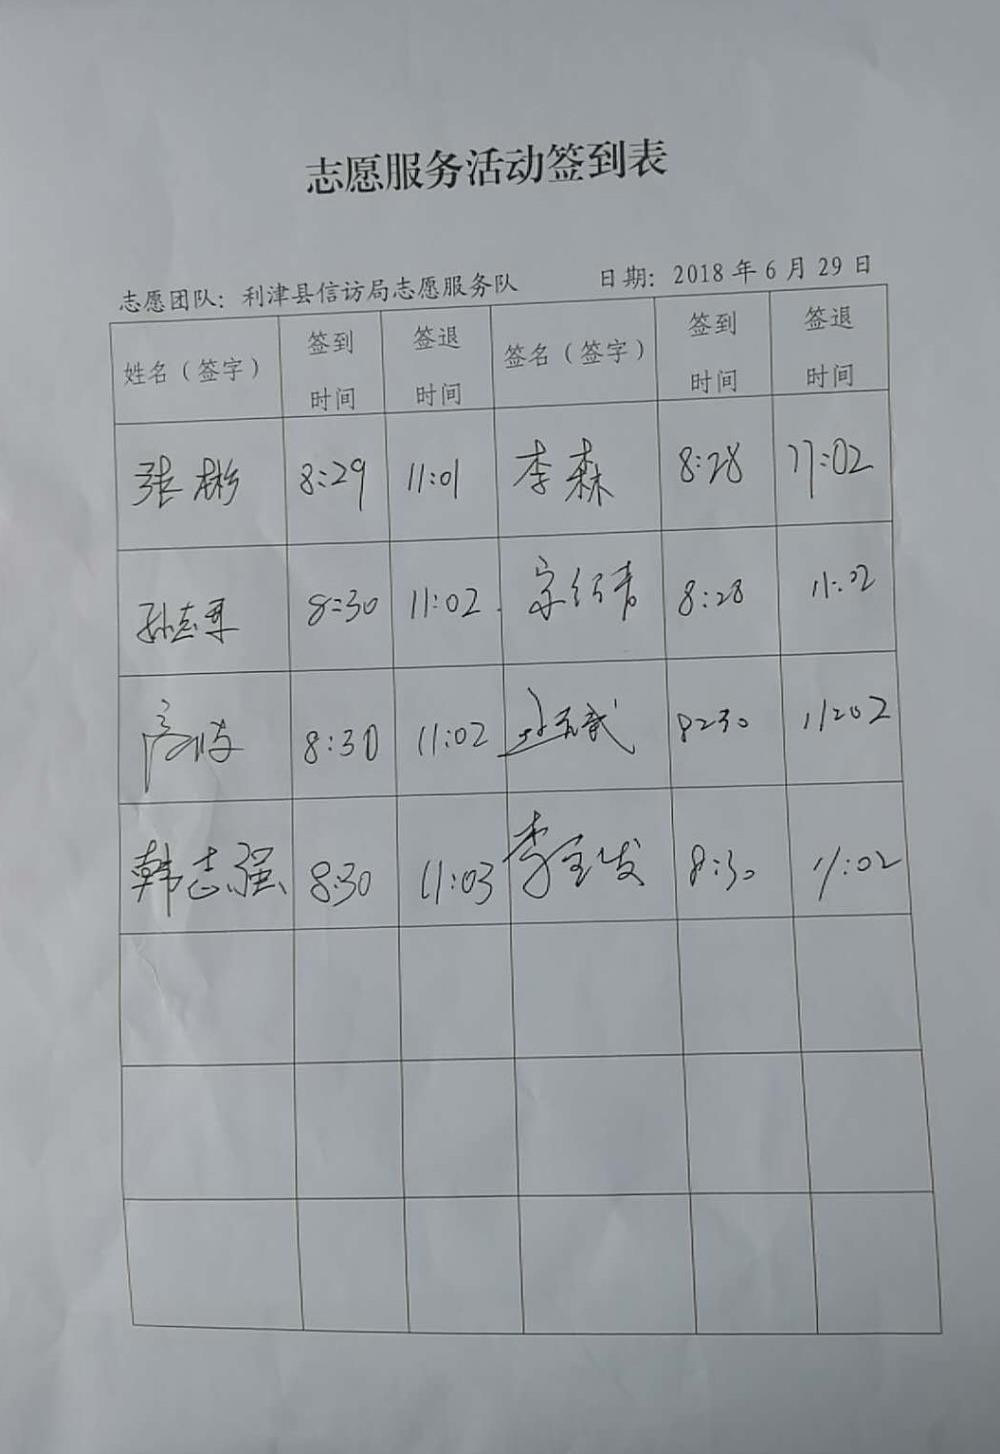 志愿服务活动签到表
志愿团队：利津县信访局志愿服务队 日期：2018年6月29日
姓名（签字） 签到时间 签退时间 签名（签字） 签到时间 签退时间
张彬 8:29 11:01 李森 8:28 11:02
8:30 11:02 8:28 11:02
8:30 11:02 8:30 11:02
韩志强 8:30 11:03 李宝发 8:30 11:02